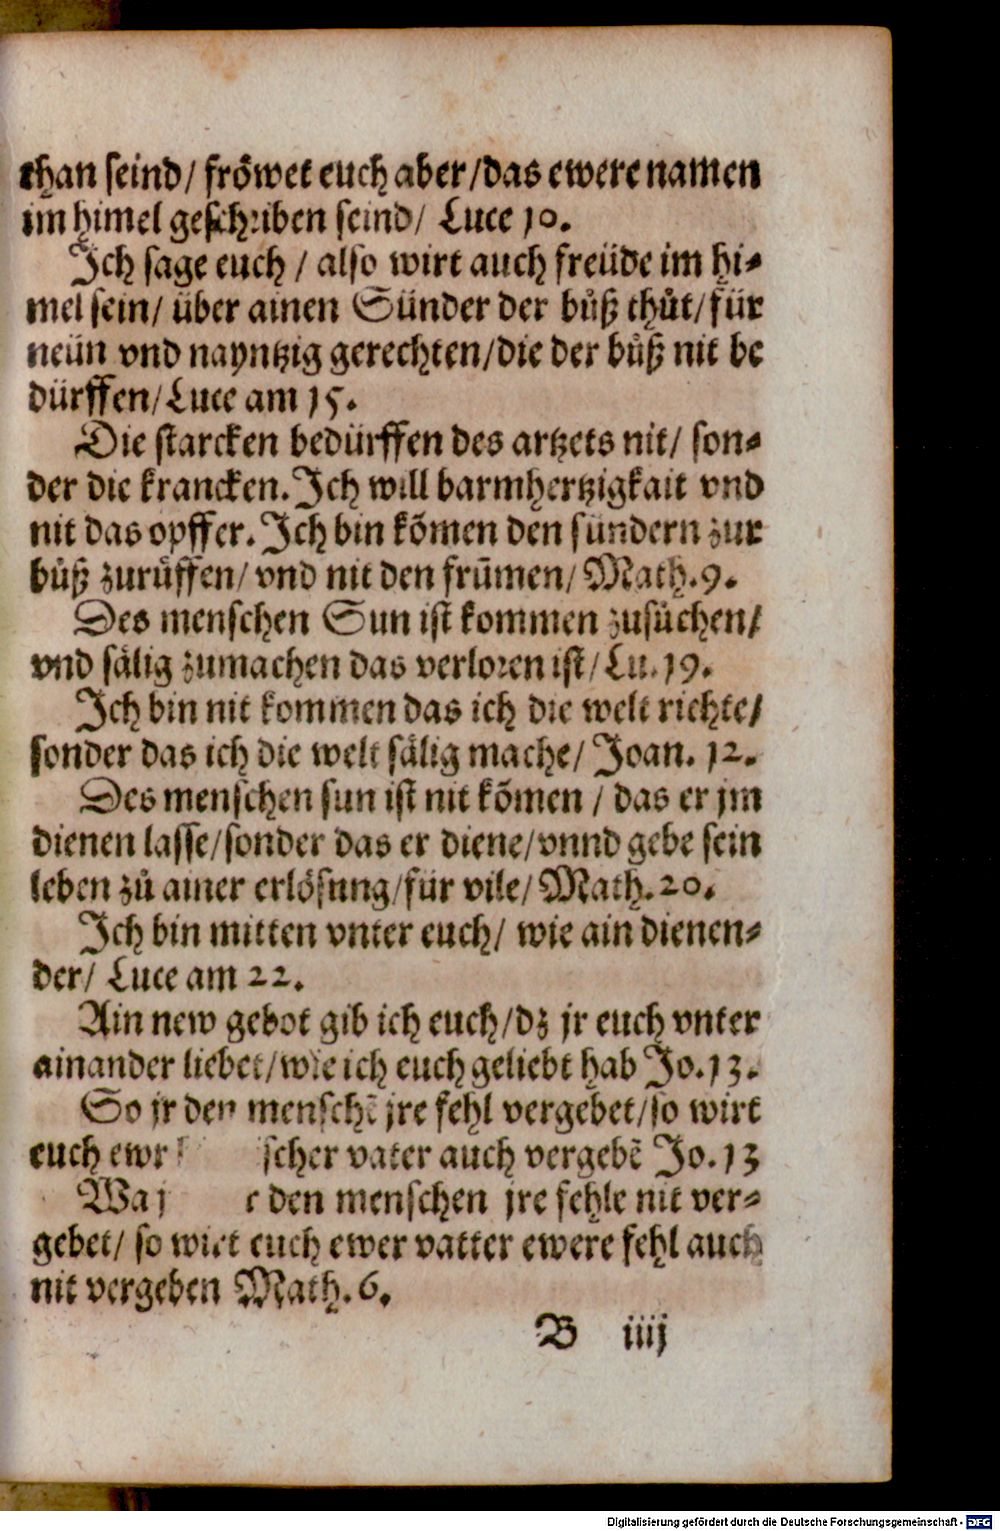 than seind/ fröwet euch aber/das ewere namen
im himel geschriben seind/ Luce 10.
Ich sage euch / also wirt auch freüde im hi⸗
mel sein/ über ainen Sünder der bůß thůt/für
neün vnd nayntzig gerechten/die der bůß nit be
dürffen/Luce am 15.
Die starcken bedürffen des artzets nit/ son⸗
der die krancken. Ich will barmhertzigkait vnd
nit das opffer. Ich bin kõmen den sündern zur
bůß zurůffen/ vnd nit den frũmen/ Math. 9.
Des menschen Sun ist kommen zusůchen/
vnd sälig zumachen das verloren ist/ Lu. 19.
Ich bin nit kommen das ich die welt richte/
sonder das ich die welt sälig mache/ Joan. 12.
Des menschen sun ist nit kõmen / das er jm
dienen lasse/sonder das er diene/vnnd gebe sein
leben zů ainer erlösung/für vile/ Math. 20.
Ich bin mitten vnter euch/ wie ain dienen⸗
der/ Luce am 22.
Ain new gebot gib ich euch/dz jr euch vnter
ainander liebet/wie ich euch geliebt hab Jo. 13.
So jr den menschẽ jre fehl vergebet/so wirt
euch ewr scher vater auch vergebẽ Jo. 13
Wa j e den menschen jre fehle nit ver⸗
gebet/ so wirt euch ewer vatter ewere fehl auch
nit vergeben Math. 6.
B iiij
Digitalisierung gefördert durch die Deutsche Forschungsgemeinschaft - DFG